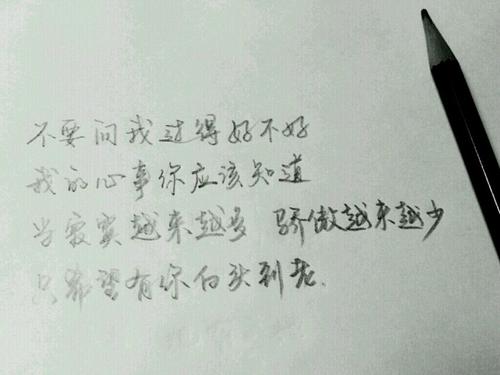 不要问我过得好不好
我的心事你应该知道
当寂寞越来越多 骄傲越来越少
只希望有你白头到老.